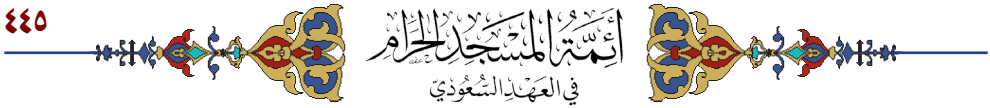 ٤٤٥
أَئِمَّةُ المَسْجِدِ الحَرَامِ
في العَهْدِ السُّعُودِيِّ